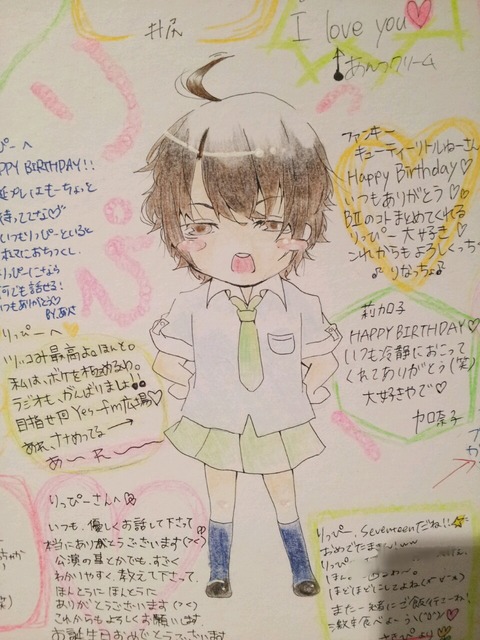 I love you
あんックリーム
ファンキー
キューティーリトルねーさん
Happy Birthday♡
いつもありがとう♡
BIIのコトまとめてくれる
りっぴー大好き♡
これからもよろしくっちゃ
♪りなっちょ♪
っぴーへ
PPY BIRTHDAY!!
プレはもーちょっと
待っててな♡
いつもりっぴーといると
おちつくし
りっぴーになら
何でも話せる!
いつもありがとう♡
BY.あんさ
莉加子
HAPPY BIRTHDAY♡
いつも冷静におこって
くれてありがとう(笑)
大好きやで♡
加奈子
りっぴーへ♡
ツッコミ最高よ。ほんと。
私はボケを極めるわ。
ラジオも、がんばりましょ!!
目指せ Yes-fm広場♡
あれ、ナナメってる→
あーれー
りっぴーさんへ
いつも、優しくお話して下さって
本当にありがとうございます
公演の事とかでも、すごく
わかりやすく、教えて下さって、
ほんとうにほんとうに
ありがとうございます
これからもよろしくお願いします。
お誕生日おめでとうございます
りっぴー、Seventeenだね!!
おめでたまきんww
りっぴ
ほん
ほどほどにしてよね
また一緒にご飯行こーね!